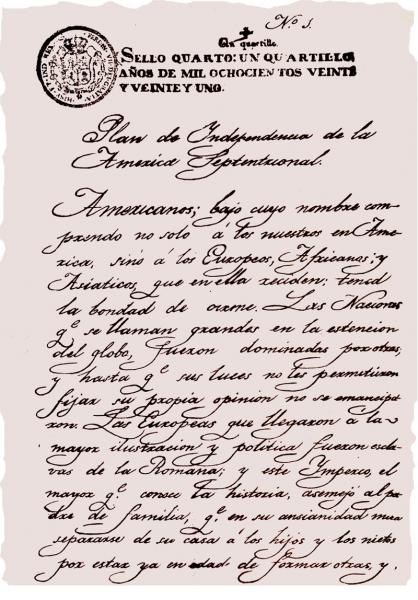 N.º 1.
Un quartillo.
SELLO QUARTO: UN QUARTILLO
AÑOS DE MIL OCHOCIENTOS VEINTE
Y VEINTE Y UNO.
Plan de Independencia de la
America Septentrional.
Americanos; bajo cuyo nombre com
prendo no solo á los nuestros en Ame
rica, sino á los Europeos, Africanos; y
Asiaticos, que en ella reciden: tened
la bondad de oirme. Las Naciones
q.e se llaman grandes en la estencion
del globo, fueron dominadas por otras;
y hasta q.e sus luces no les permitieron
fijar su propia opinion no se emancipa
ron. Las Europeas que llegaron á la
mayor ilustracion y politica fueron escla
vas de la Romana; y este Imperio, el
mayor q.e conoce la historia, asemejó al pa
dre de familia, q.e en su ansianidad mira
separarse de su casa á los hijos y los nietos
por estar ya en edad de formar otras, y